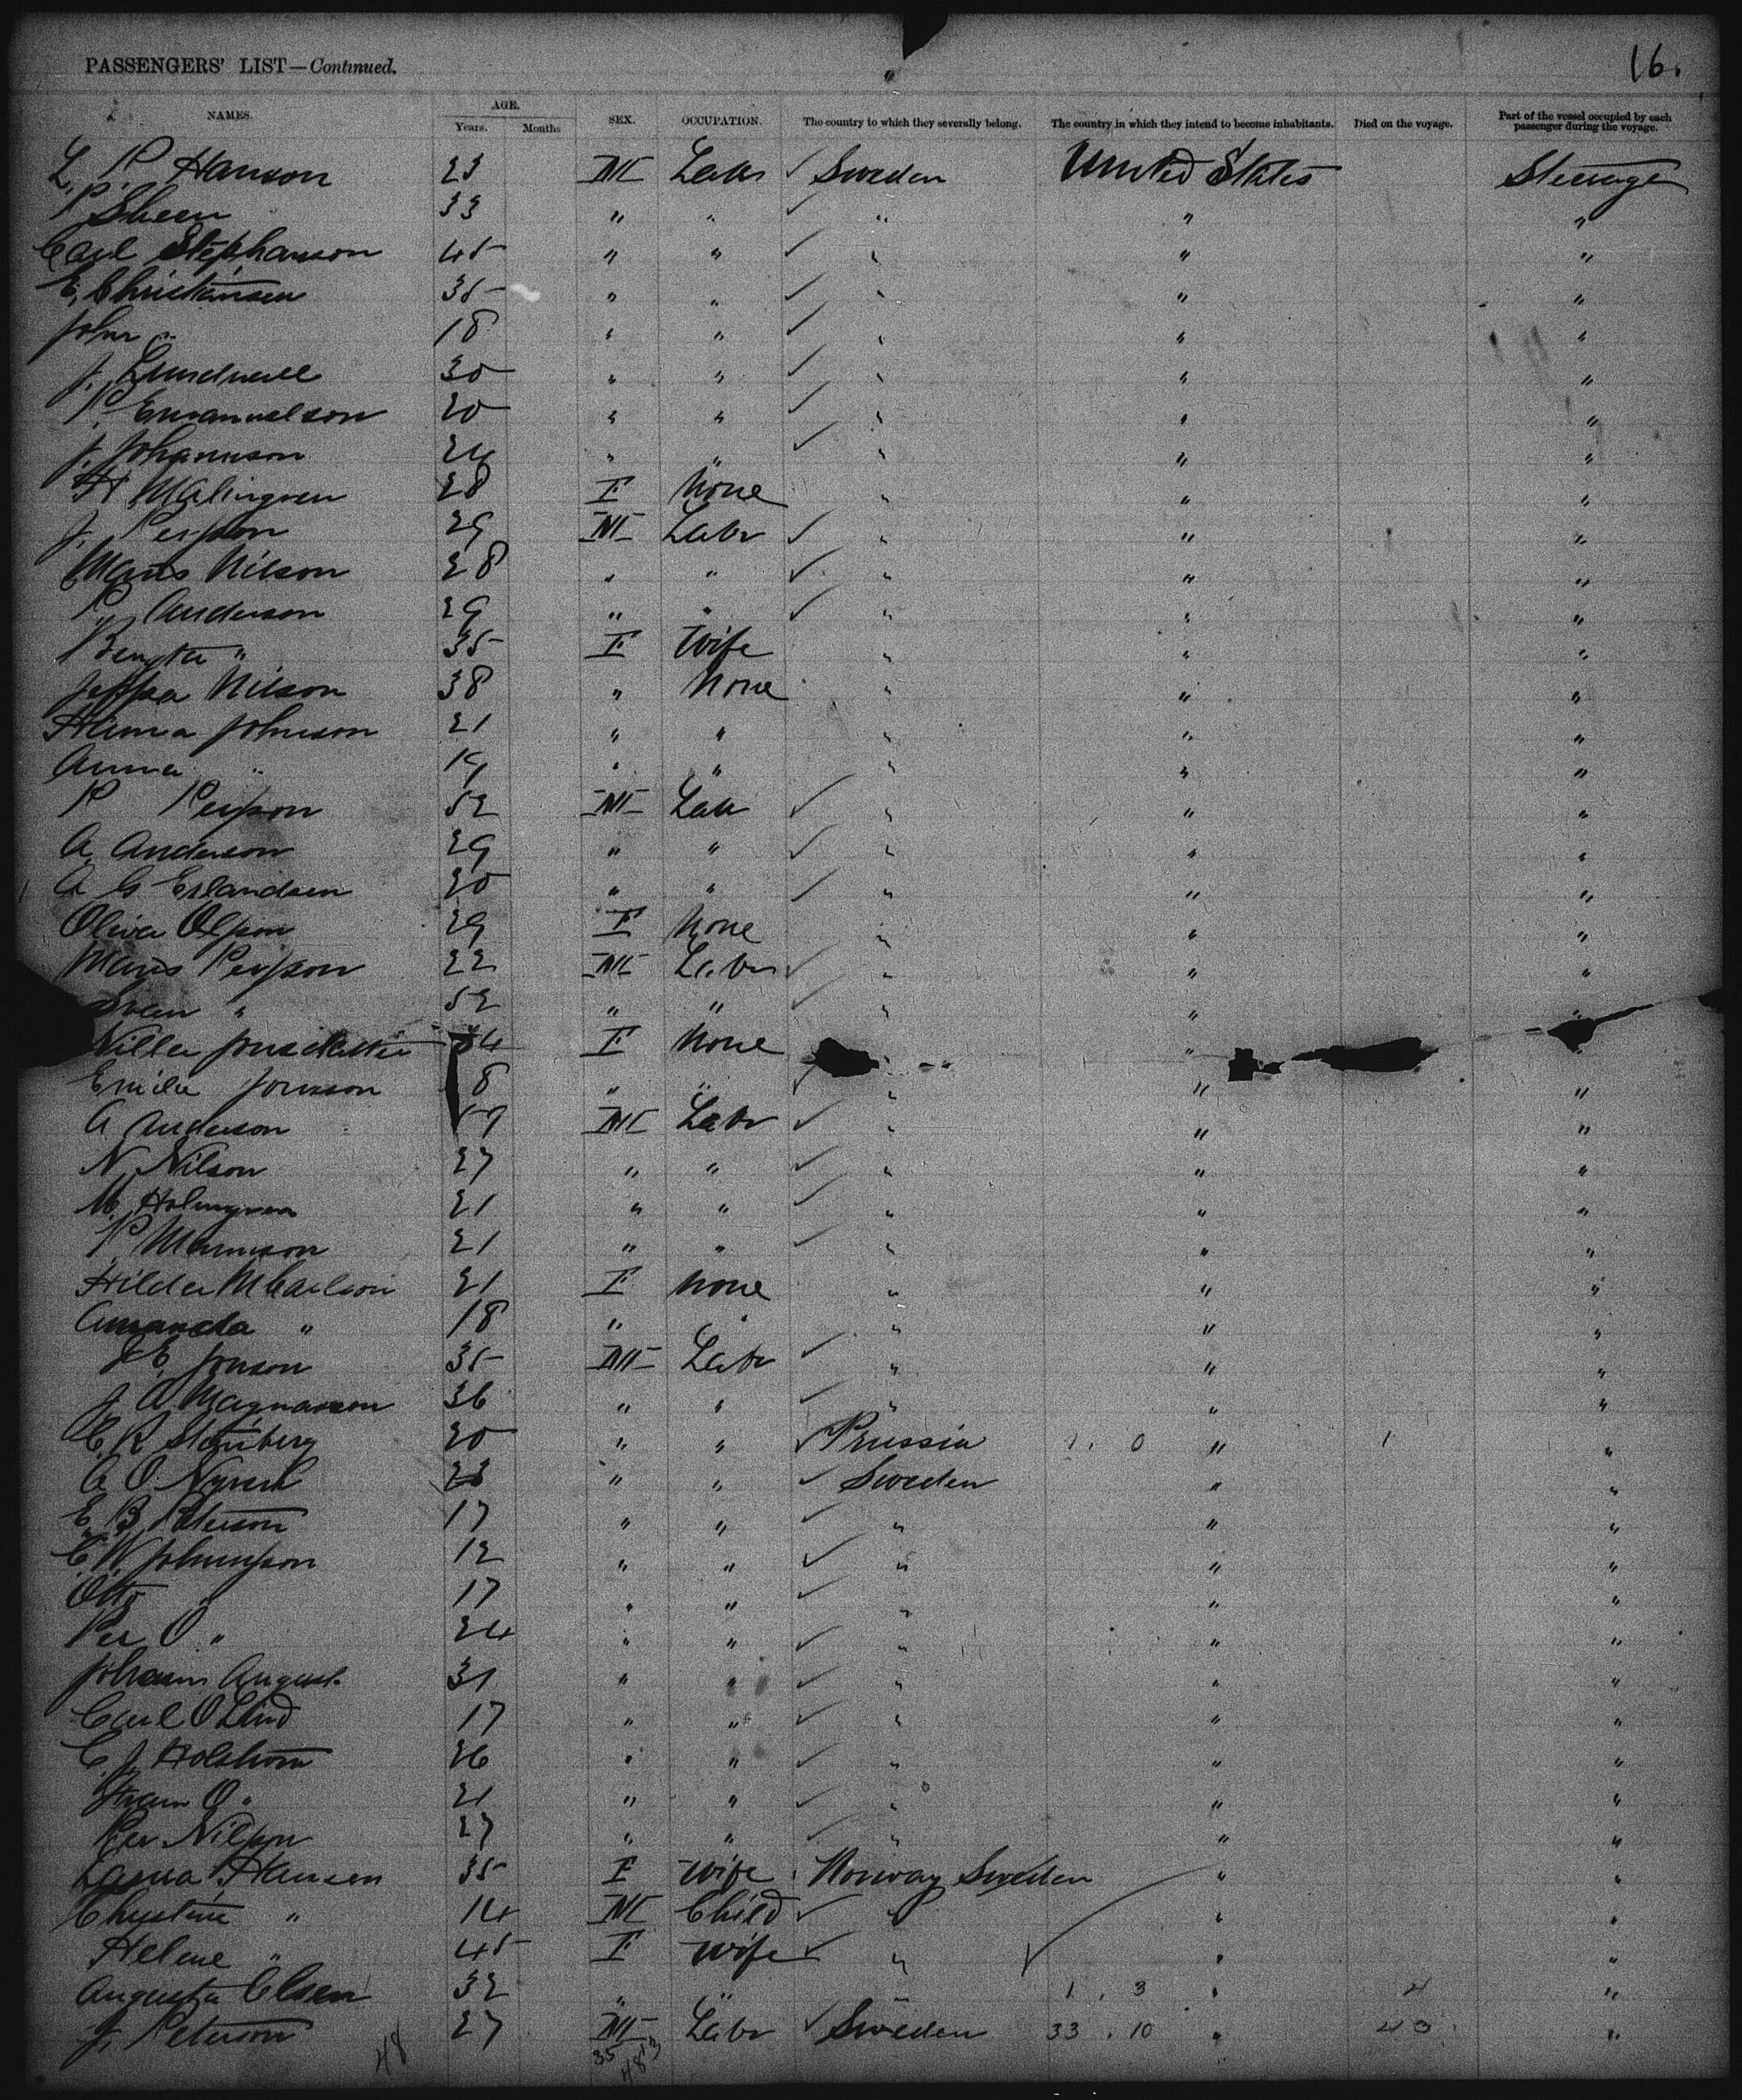 PASSENGERS' LIST—Continued. 16.
NAMES. AGE. Years. Months SEX. OCCUPATION. The country to which they severally belong. The country in which they intend to become inhabitants. Died on the voyage. Part of the vessel occupied by each passenger during the voyage.
L. P. Hanson 23 M Labr ✓ Sweden United States Steerage
P 33 " " ✓ " " "
Carl Stephanson 45 " " ✓ " " "
E. Christiansen 35 " " ✓ " " "
John " 18 " " ✓ " " "
J. Lundwall 30 " " ✓ " " "
P. Emanuelson 20 " " ✓ " " "
J. Johannson 24 " " ✓ " " "
H. Malingren 28 F None " " "
J. Persson 29 M Labr ✓ " " "
Mans Nilson 28 " " ✓ " " "
P. Anderson 29 " " ✓ " " "
Bengta " 35 F Wife " " "
Jeppa Nilson 38 " None " " "
Hanna Johnson 21 " " " " "
Anna " 19 " " " " "
P Persson 52 M Labr ✓ " " "
A. Anderson 29 " " ✓ " " "
A G Erlandsen 20 " " ✓ " " "
Oliva Olsson 29 F None " " "
Mans Persson 22 M Labr ✓ " " "
Sven " 52 " " ✓ " " "
Nilla F None " " "
Emila Jonsson 8 " " ✓ " " "
A Anderson 17 M Labr ✓ " " "
N. Nilson 27 " " ✓ " " "
M. Holmgren 21 " " ✓ " " "
P. Monnson 21 " " ✓ " " "
Hilda M Carlson 21 F None " " "
Amanda " 18 " " " " "
J E. Jonson 35 M Labr ✓ " " "
J. A. Magnusson 36 " " ✓ " " "
C. R Stenberg 20 " " ✓ Prussia 1. 0 " 1 "
A O. 23 " " ✓ Sweden " "
E. B. Peterson 17 " " ✓ " " "
C. W. Johnsson 12 " " ✓ " " "
Otto " 17 " " ✓ " " "
Per O " 24 " " ✓ " " "
Johann August 31 " " ✓ " " "
Carl O Lind 17 " " ✓ " " "
C. J. Holstrom 26 " " ✓ " " "
O " 21 " " ✓ " " "
Per Nilsson 27 " " ✓ " " "
Hansen 35 F Wife Norway Sweden " "
Christine " 14 M Child ✓ " " "
Helene " 45 F Wife ✓ " ✓ " "
Augusta Olsen 32 " " " 1. 3 " 4 "
J. Peterson 27 M Labr ✓ Sweden 33. 10 " 43 "
48 35 13
48